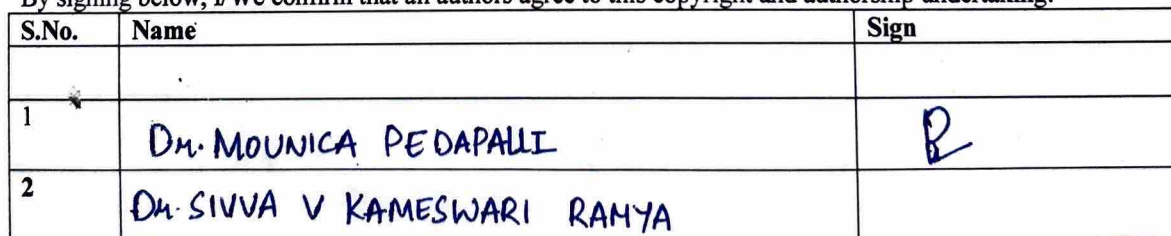 By signing below, I/We confirm that all authors agree to this copyright and authorship undertaking.
S.No. Name Sign
1 Dr. MOUNICA PEDAPALLI
2 Dr. SIVVA V KAMESWARI RAMYA